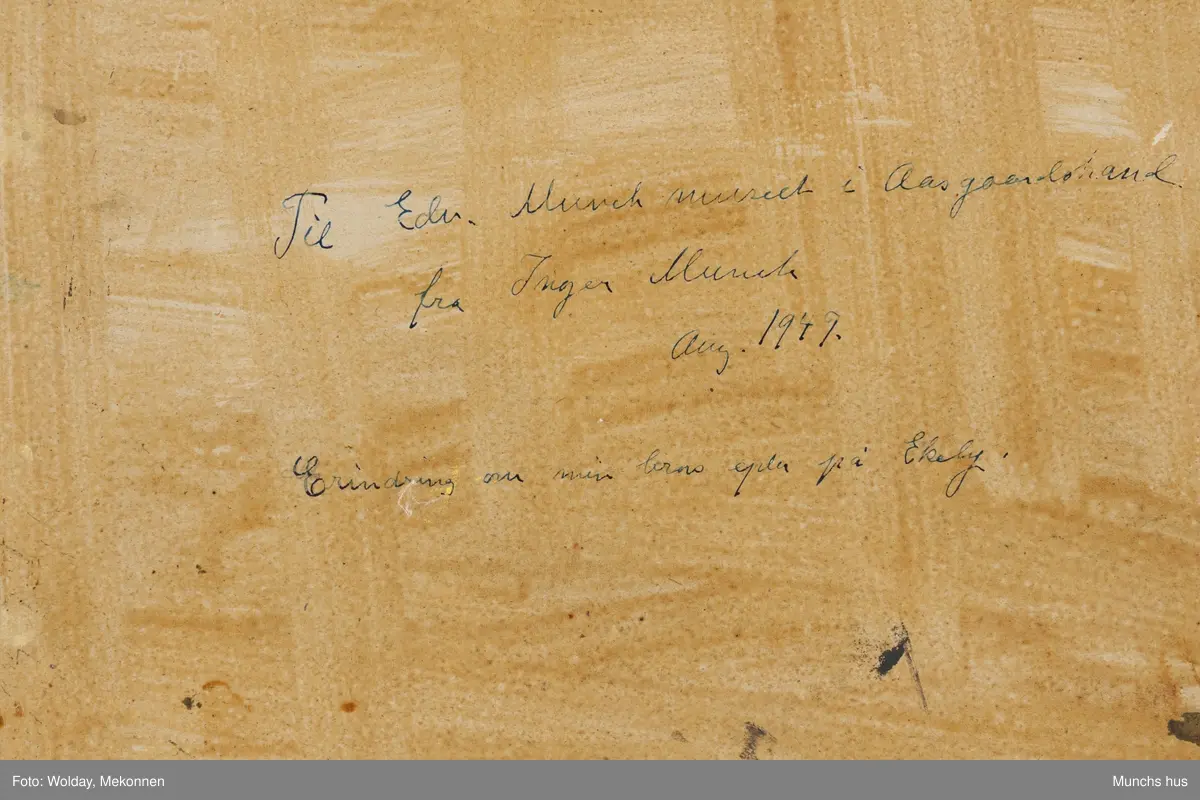 Til Edv. Munch museet i Aasgaardstrand.
fra Inger Munch
Aug. 1947.
Erindring om min bror på Ekely.
Foto: Wolday, Mekonnen
Munchs hus